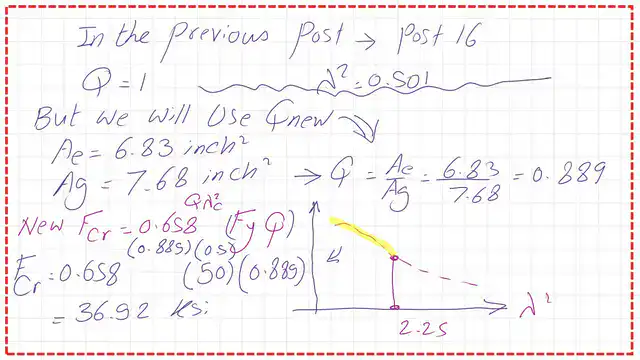 In the Previous Post → Post 16
Q = 1 λ² = 0.501
But we will Use Qnew
Ae = 6.83 inch²
Ag = 7.68 inch² → Q = Ae/Ag = 6.83/7.68 = 0.889
New Fcr = 0.658^(Qλc²) (Fy Q)
Fcr = 0.658^((0.889)(0.5)) (50)(0.889)
= 36.92 ksi
2.25 λ²